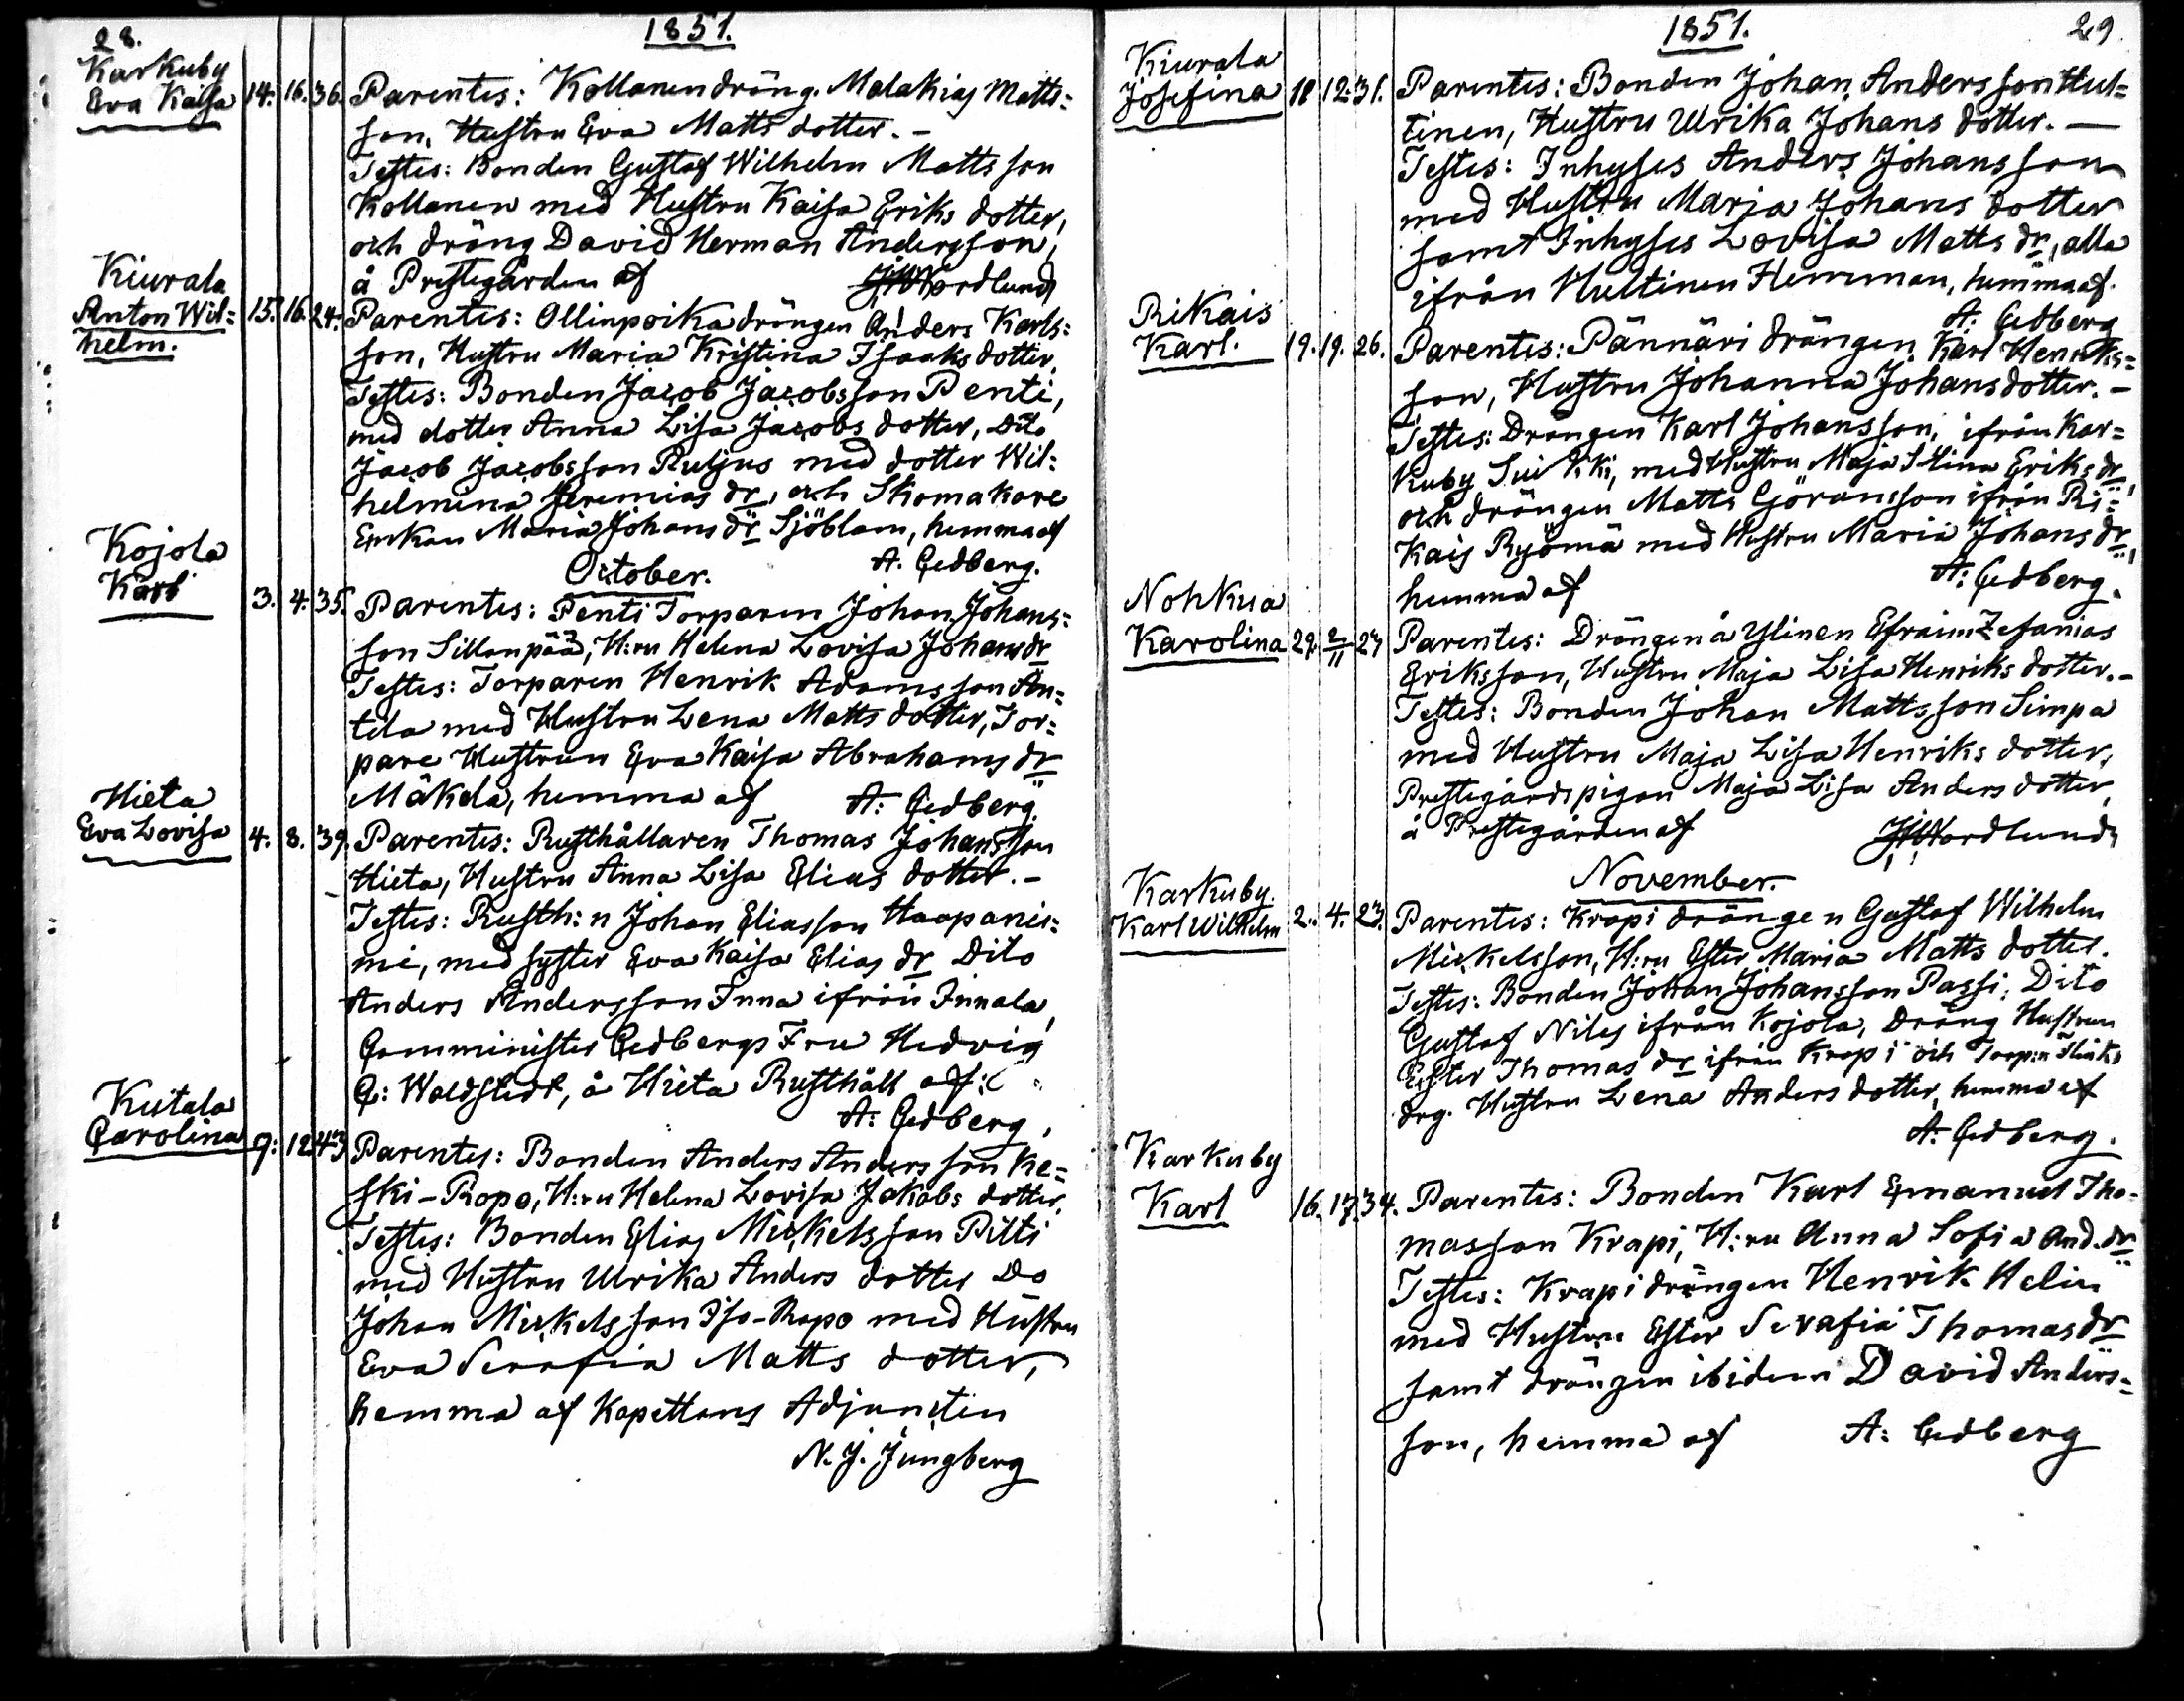 28.
1851.
Karkuby
Eva Kaisa
14. 16. 36. Parentes: Kollanendräng. Malakias Matts=
son, Hustru Eva Matts dotter. -
Testes: Bonden Gustaf Wilhelm Matts son
Kollanen med Hustru Kaisa Eriks dotter,
och dräng David Herman Andersson,
å Prestegården af JWNordlund
Kiurala
Anton Wil=
helm.
15. 16. 24. Parentes: Ollinpoika drängen Anders Karls=
son, Hustru Maria Kristina Isaaks dotter.
Testes: Bonden Jacob Jacobsson Penti,
med dotter Anna Lisa Jacobs dotter, Dito
Jacob Jacobsson Ruljus med dotter Wil=
helmina Jeremias dr, och Skomakare
Enkan Maria Johans dr Sjöblom, hemma af
A. Cedberg.
October.
Kojola
Karl
3. 4. 35. Parentes: Penti Torparen Johan Johans=
son Sillanpää, H:ru Helena Lovisa Johans dr
Testes: Torparen Henrik Adamsson An=
tila med Hustru Lena Matts dotter, Tor=
pare Hustrun Eva Kaisa Abrahams dr
Mäkela, hemma af A: Cedberg.
Hieta
Eva Lovisa
4. 8. 39. Parentes: Rusthållaren Thomas Johansson
Hieta, Hustru Anna Lisa Elias dotter. -
Testes: Rusth:n Johan Eliasson Haapanie=
mi, med syster Eva Kaisa Elias dr Dito
Anders Andersson Inna ifrån Innala,
Comminister Cedbergs Fru Hedvig
C: Waldstedt, å Hieta Rusthåll af:
A: Cedberg,
Kutala
Carolina
9: 12 43 Parentes: Bonden Anders Andersson Ke=
ski-Ropo, H:ru Helena Lovisa Jakobs dotter.
Testes: Bonden Elias Mickelsson Pitti
med Hustru Ulrika Anders dotter Do
Johan Mickelsson Iso-Ropo med Hustru
Eva Serafia Matts dotter,
hemma af Kapellans Adjuncten
N. J. Jungberg
1851.
29.
Kiurala
Josefina
18 12. 31. Parentes: Bonden Johan Andersson Hul=
tinen, Hustru Ulrika Johans dotter. —
Testes: Inhyses Anders Johansson
med Hustru Maria Johans dotter
samt Inhyses Lovisa Matts dr, alla
ifrån Hultinen Hemman, hemma af.
A: Cedberg
Rikais
Karl.
19. 19. 26. Parentes: Pännäri drängen Karl Henriks=
son, Hustru Johanna Johansdotter. -
Testes: Drängen Karl Johansson, ifrån Kar=
kuby Suikki, med Hustru Maja Stina Eriks dr,
och drängen Matts Göransson ifrån Ri=
kais Ryömä med Hustru Maria Johans dr,
hemma af A: Cedberg.
Nohkua
Karolina
29. 2/11 27 Parentes: Drängen å Ylinen Efraim Zefanias
Eriksson, Hustru Maja Lisa Henriks dotter. -
Testes: Bonden Johan Mattsson Simpa
med Hustru Maja Lisa Henriks dotter,
Prestegårdspigan Maja Lisa Anders dotter,
å Prestegården af JWNordlund
November.
Karkuby.
Karl Wilhelm
2. 4. 23. Parentes: Krapi drängen Gustaf Wilhelm
Mickelsson, H:ru Ester Maria Matts dotter.
Testes: Bonden Johan Johansson Passi, Dito
Gustaf Niles ifrån Kojola, Dräng Hustrun
Ester Thomas dr ifrån Krapi och Torp:n
drg. Hustru Lena Anders dotter, hemma af
A: Cedberg.
Karkuby
Karl
16. 17. 34. Parentes: Bonden Karl Emanuel Tho=
masson Krapi, H:ru Anna Sofia And. dr
Testes: Krapi drängen Henrik Helin
med Hustru Ester Serafia Thomas dr
samt drängen ibidem David Anders=
son, hemma af A: Cedberg